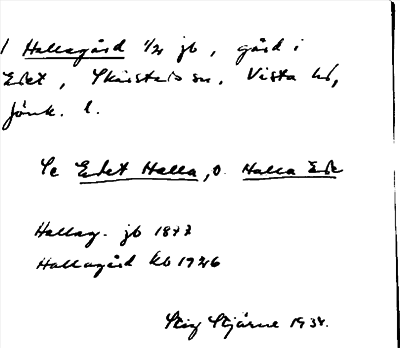 / Hallagård 1/2 jb, gård i
Edet, Skärstads sn. Vista hd,
Jönk. l.
Se Edet Halla, o. Halla Ede
Hallag. jb 1842
Hallagård kb 1926
Stig Stjärne 1934.